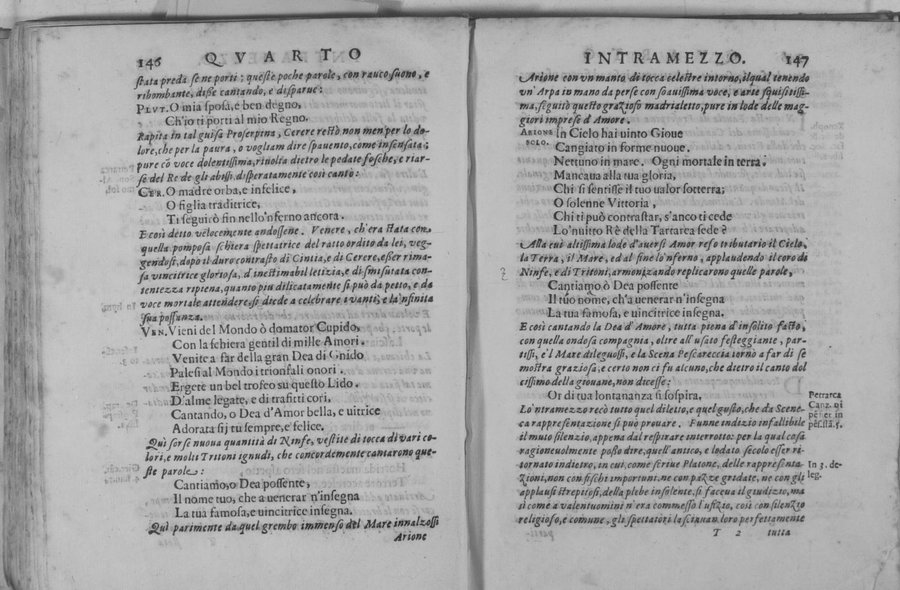 146 QVARTO
stata preda se ne porti; queste poche parole, con rauco suono, e
ribombante, disse cantando, e disparue:
PLVT. O mia sposa, e ben degno,
Ch'io ti porti al mio Regno.
Rapita in tal guisa Proserpina, Cerere restò non men'per lo do-
lore, che per la paura, o vogliam dire spauento, come insensata;
pure cō voce dolentissima, riuolta dietro le pedate fosche, e riar-
se del Re de gli abissi, disperatamente così cantò:
CER. O madre orba, e infelice,
O figlia traditrice,
Ti seguirò fin nello'nferno ancora.
E così detto velocemente andossene. Venere, ch'era stata con
quella pomposa schiera spettatrice del ratto ordito da lei, veg-
gendosi, dopo il duro contrasto di Cintia, e di Cerere, esser rima-
sa vincitrice gloriosa, d'inestimabil letizia, e di smisurata con-
tentezza ripiena, quanto più dilicatamente si può da petto, e da
voce mortale attendere, si diede a celebrare i vanti, e la'nfinita
sua possanza.
VEN. Vieni del Mondo ò domator Cupido,
Con la schiera gentil di mille Amori.
Venite a far della gran Dea di Gnido
Palesi al Mondo i trionfali onori.
Ergete un bel trofeo su questo Lido.
D'alme legate, e di trafitti cori,
Cantando, o Dea d'Amor bella, e uitrice
Adorata sij tu sempre, e felice.
Quì sorse nuoua quantità di Ninfe, vestite di tocca di vari co-
lori, e molti Tritoni ignudi, che concordemente cantarono que-
ste parole:
Cantiamo, o Dea possente,
Il nome tuo, che a uenerar n'insegna
La tua famosa, e uincitrice insegna.
Quì parimente da quel grembo immenso del Mare innalzossi
Arione
INTRAMEZZO. 147
Arione con vn manto di tocca celestre intorno, il qual tenendo
vn' Arpa in mano da perse con soauissima voce, e arte squisitissi-
ma, seguitò questo grazioso madrialetto, pure in lode delle mag-
giori imprese d'Amore.
ARIONE SOLO. In Cielo hai uinto Gioue
Cangiato in forme nuoue.
Nettuno in mare. Ogni mortale in terra.
Mancaua alla tua gloria,
Chi si sentisse il tuo ualor sotterra;
O solenne Vittoria,
Chi ti può contrastar, s'anco ti cede
Lo'nuitto Rè della Tartarea sede?
Alla cui altissima lode d'auersi Amor reso tributario il Cielo,
la Terra, il Mare, ed al fine lo'nferno, applaudendo il coro di
Ninfe, e di Tritoni, armonizando replicarono quelle parole,
Cantiamo ò Dea possente
Il tuo nome, ch'a uenerar n'insegna
La tua famosa, e uincitrice insegna.
E così cantando la Dea d'Amore, tutta piena d'insolito fasto,
con quella ondosa compagnia, oltre all'usato festeggiante, par-
tissi, e'l Mare dileguossi, e la Scena Pescareccia tornò a far di se
mostra graziosa, e certo non ci fu alcuno, che dietro il canto dol
cissimo della giouane, non dicesse:
Or di tua lontananza si sospira,
Petrarca
Lo'ntramezzo recò tutto quel diletto, e quel gusto, che da Sceni-
ca rappresentazione si può prouare. Funne indizio infallibile
il muto silenzio, appena dal respirare interrotto: per la qual cosa
ragioneuolmente posso dire, quell'antico, e lodato secolo esser ri-
tornato indietro, in cui, come scriue Platone, delle rappresenta-
In 3. de-
leg.
zioni, non con fischi importuni, ne con pazze gridate, ne con gli
applausi strepitosi, della plebe insolente, si faceua il giudizio, ma
sì come a valentuomini n'era commesso l'ufizio, così con silenzio
religioso, e comune, gli spettatori lasciauan loro perfettamente
T 2 tutta